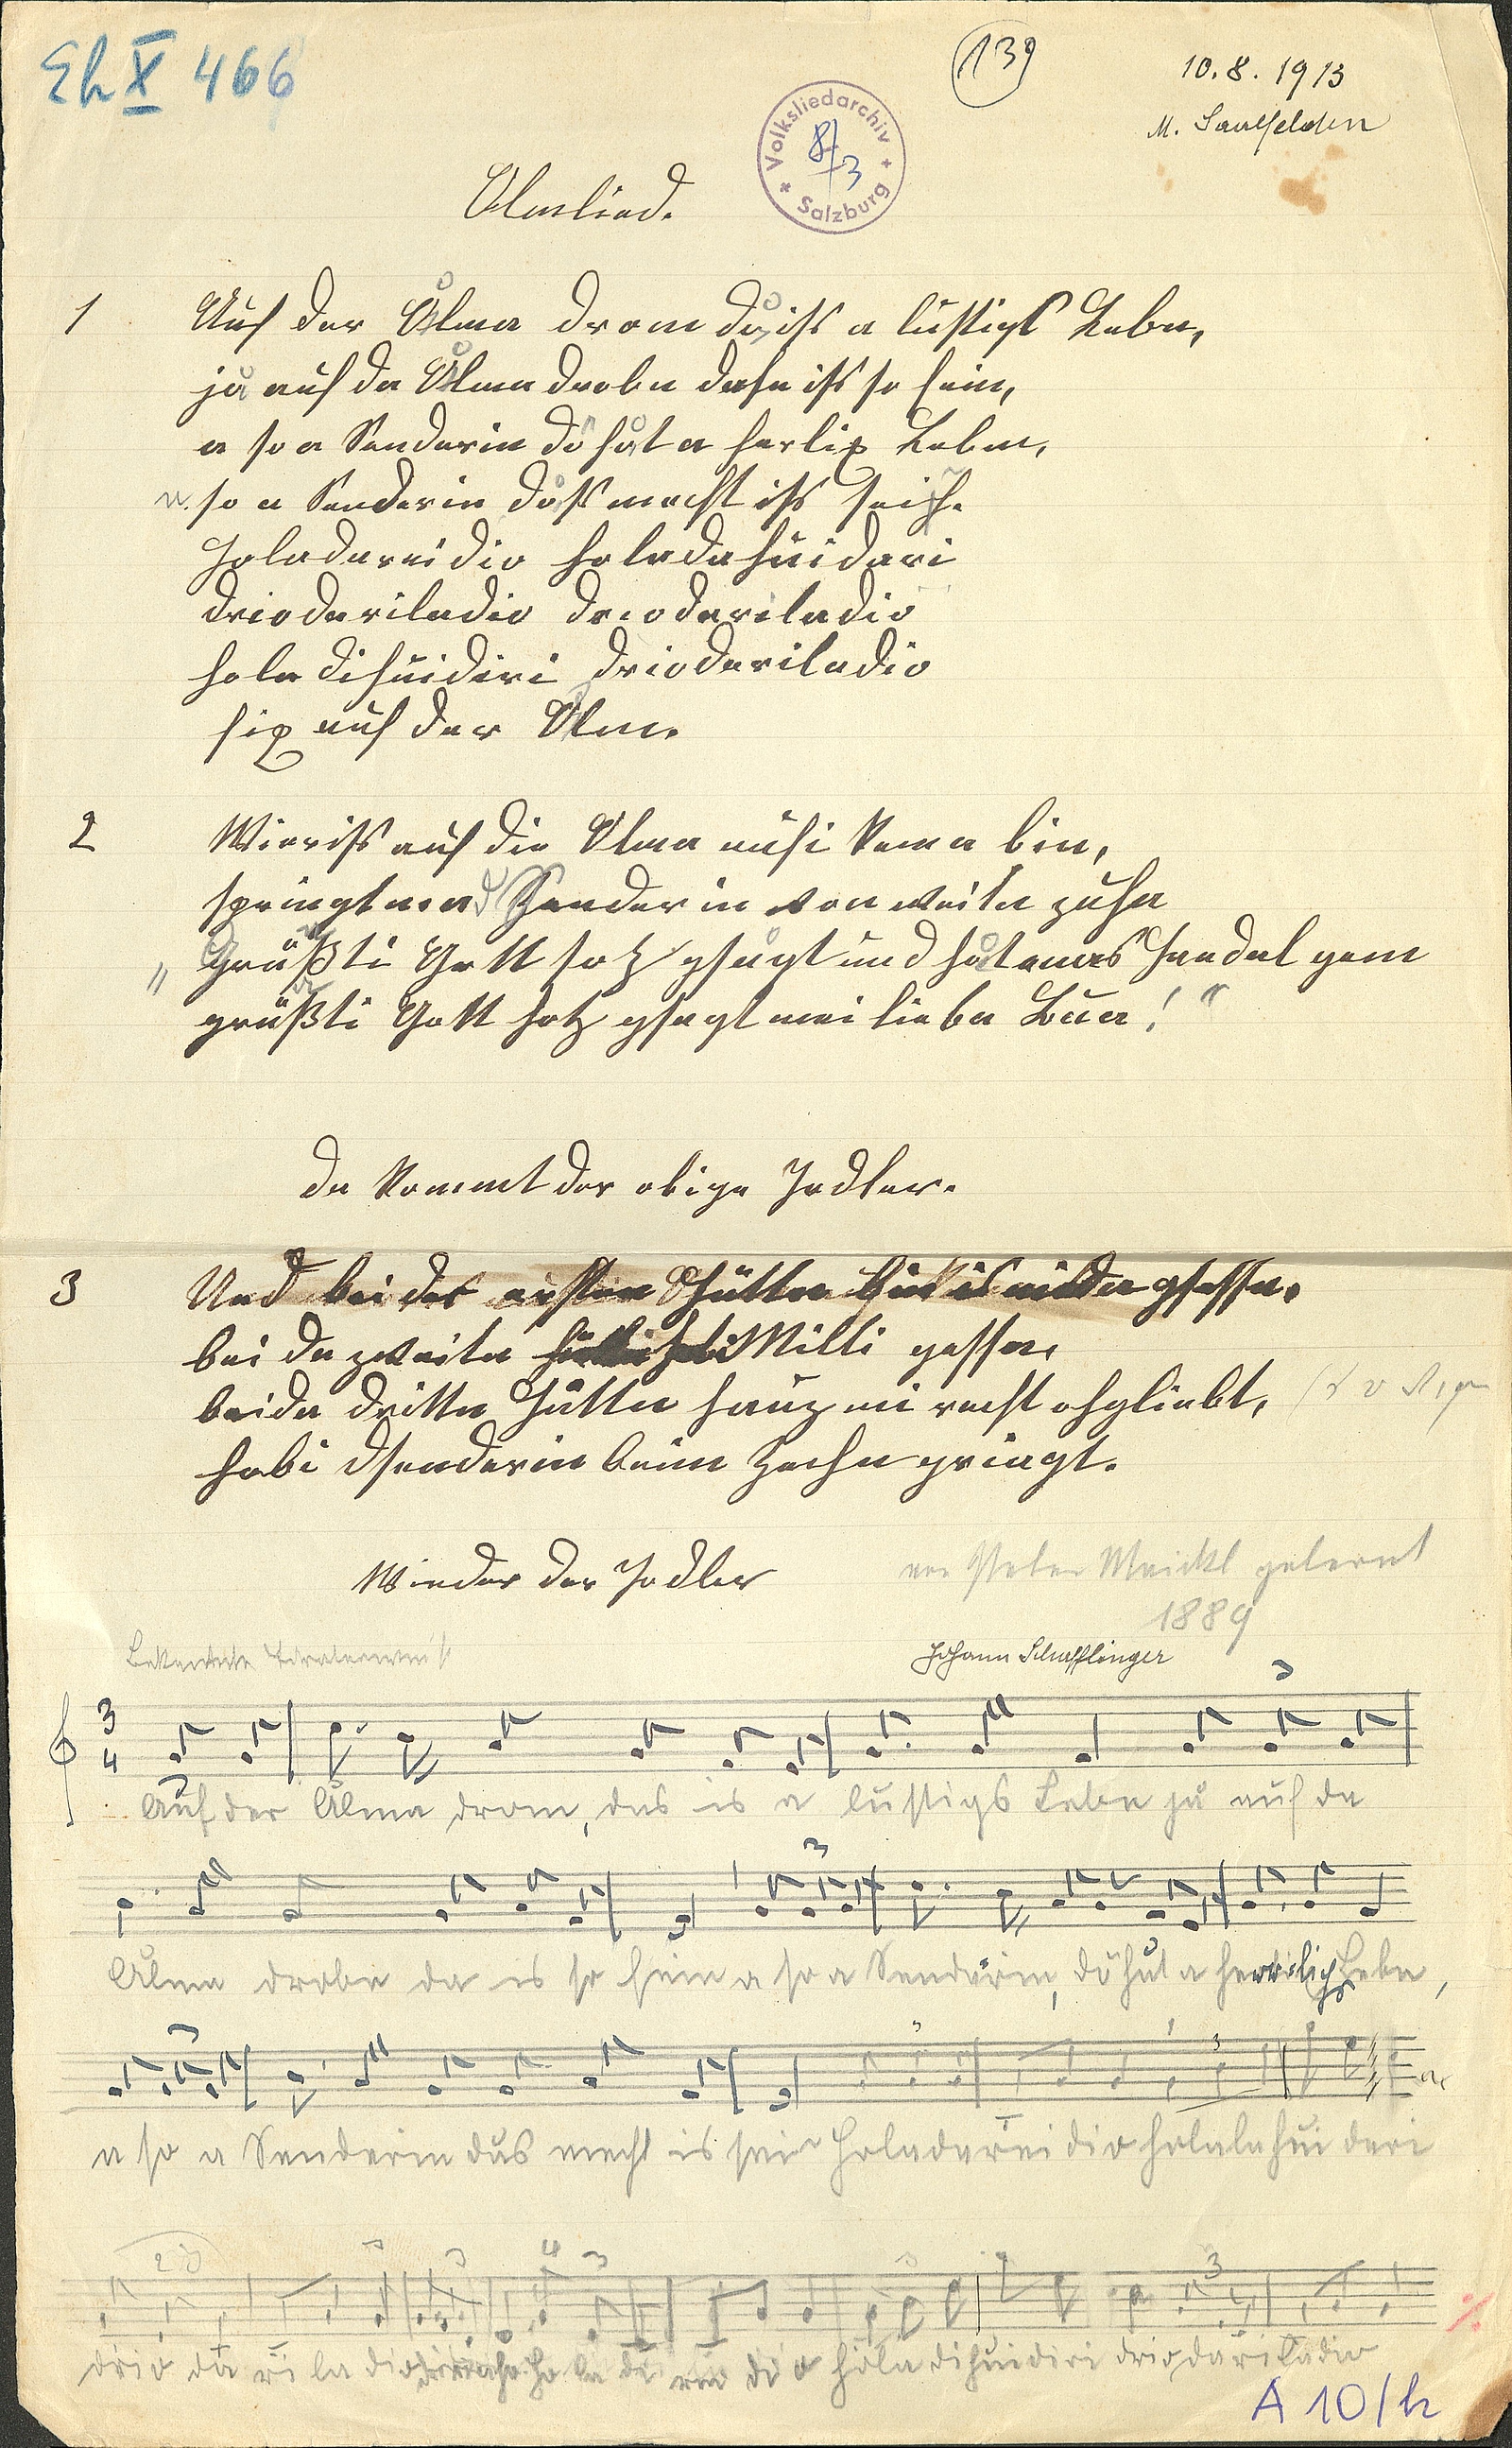 Eh X 466
139
10.8.1913
M. Saalfelden
Volksliedarchiv Salzburg
8/3
Almlied.
1 Auf der Ålma drom då iss a lustigs Lebn,
jå auf da Ålma drobn dahn iss so fein,
a so a Senderin dö håt a herlix Leben,
a so a Senderin dåss mecht iss sein.
Holadareidio holadahuidari
driodariladio driodariladio
hola dihuidiri driodariladio
hix auf der Alm.
2 Wieriss auf die Alma auhi kema bin,
springt ma d Senderin von weitn zuhn
„ grüßti Gott hotz gsågt und håt mas Handal gem
grüßti Gott hotz gsagt mei lieba Bua! “
Da kommt der obige Jodler.
3 Und bei der ersten Hüttn bin is nieder gsessn,
bei da zweiten Milli gessn,
beida dritten Hüttn hauz mi recht ohgliebt,
habi dsenderin beim Zechn griagt.
Wieder der Jodler
von Peter Meickl gelernt
1889
Johann Schafflinger
3/4
Auf der Ålma drom, das is a lustigs Lebn jå auf da
Ålma drobn da is so fein a so a Senderin, dö håt a herrlichs Lebn,
a so a Senderin dås mecht is sein Holadareidio holalahui dari
drio da ri la dio ho la di rei di o hola dihuidiri driodariladio
A 10/h